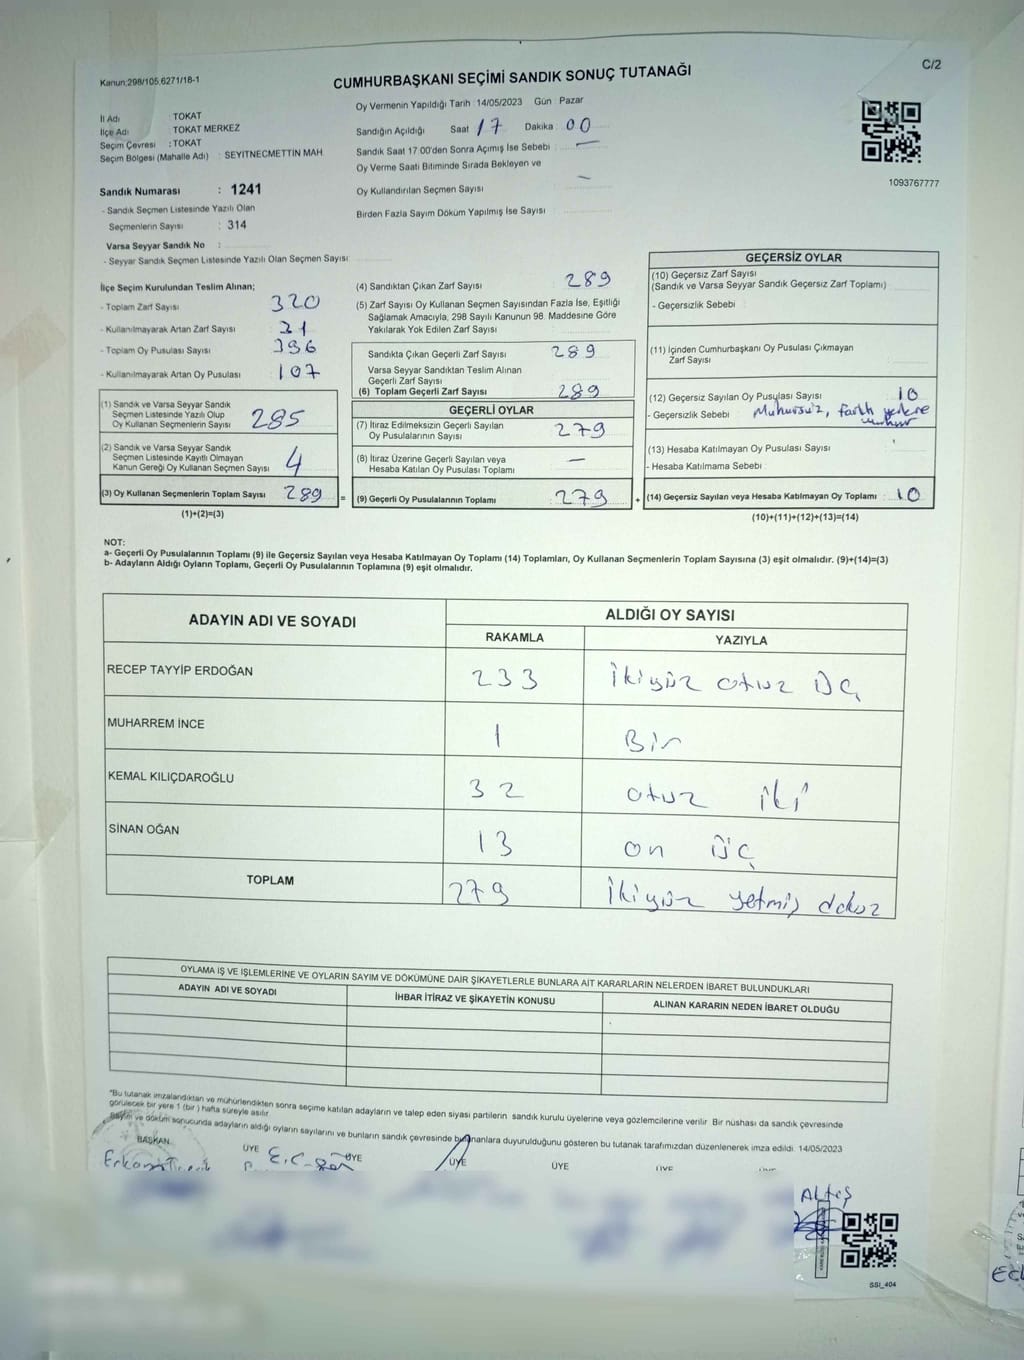 C/2
Kanun:298/105,6271/18-1
CUMHURBAŞKANI SEÇİMİ SANDIK SONUÇ TUTANAĞI
İl Adı : TOKAT
İlçe Adı : TOKAT MERKEZ
Seçim Çevresi : TOKAT
Seçim Bölgesi (Mahalle Adı) : SEYİTNECMETTİN MAH.
Oy Vermenin Yapıldığı Tarih : 14/05/2023 Gün : Pazar
Sandığın Açıldığı Saat 17 Dakika : 00
Sandık Saat 17:00'den Sonra Açımış İse Sebebi : —
Oy Verme Saati Bitiminde Sırada Bekleyen ve
Oy Kullandırılan Seçmen Sayısı : —
Birden Fazla Sayım Döküm Yapılmış İse Sayısı :
1093767777
Sandık Numarası : 1241
- Sandık Seçmen Listesinde Yazılı Olan
Seçmenlerin Sayısı : 314
Varsa Seyyar Sandık No :
- Seyyar Sandık Seçmen Listesinde Yazılı Olan Seçmen Sayısı:
İlçe Seçim Kurulundan Teslim Alınan;
- Toplam Zarf Sayısı : 320
- Kullanılmayarak Artan Zarf Sayısı : 31
- Toplam Oy Pusulası Sayısı : 396
- Kullanılmayarak Artan Oy Pusulası : 107
(1) Sandık ve Varsa Seyyar Sandık
Seçmen Listesinde Yazılı Olup
Oy Kullanan Seçmenlerin Sayısı : 285
(2) Sandık ve Varsa Seyyar Sandık
Seçmen Listesinde Kayıtlı Olmayan
Kanun Gereği Oy Kullanan Seçmen Sayısı : 4
(3) Oy Kullanan Seçmenlerin Toplam Sayısı : 289 =
(1)+(2)=(3)
(4) Sandıktan Çıkan Zarf Sayısı : 289
(5) Zarf Sayısı Oy Kullanan Seçmen Sayısından Fazla İse, Eşitliği
Sağlamak Amacıyla, 298 Sayılı Kanunun 98. Maddesine Göre
Yakılarak Yok Edilen Zarf Sayısı :
Sandıkta Çıkan Geçerli Zarf Sayısı : 289
Varsa Seyyar Sandıktan Teslim Alınan
Geçerli Zarf Sayısı :
(6) Toplam Geçerli Zarf Sayısı : 289
GEÇERLİ OYLAR
(7) İtiraz Edilmeksizin Geçerli Sayılan
Oy Pusulalarının Sayısı : 279
(8) İtiraz Üzerine Geçerli Sayılan veya
Hesaba Katılan Oy Pusulası Toplamı : —
(9) Geçerli Oy Pusulalarının Toplamı : 279 +
GEÇERSİZ OYLAR
(10) Geçersiz Zarf Sayısı
(Sandık ve Varsa Seyyar Sandık Geçersiz Zarf Toplamı) :
- Geçersizlik Sebebi :
(11) İçinden Cumhurbaşkanı Oy Pusulası Çıkmayan
Zarf Sayısı :
(12) Geçersiz Sayılan Oy Pusulası Sayısı : 10
- Geçersizlik Sebebi : Mühürsüz, farklı yerlere
(13) Hesaba Katılmayan Oy Pusulası Sayısı :
- Hesaba Katılmama Sebebi :
(14) Geçersiz Sayılan veya Hesaba Katılmayan Oy Toplamı : 10
(10)+(11)+(12)+(13)=(14)
NOT:
a- Geçerli Oy Pusulalarının Toplamı (9) ile Geçersiz Sayılan veya Hesaba Katılmayan Oy Toplamı (14) Toplamları, Oy Kullanan Seçmenlerin Toplam Sayısına (3) eşit olmalıdır. (9)+(14)=(3)
b- Adayların Aldığı Oyların Toplamı, Geçerli Oy Pusulalarının Toplamına (9) eşit olmalıdır.
ADAYIN ADI VE SOYADI
ALDIĞI OY SAYISI
RAKAMLA YAZIYLA
RECEP TAYYİP ERDOĞAN 233 İkiyüz otuz üç
MUHARREM İNCE 1 Bir
KEMAL KILIÇDAROĞLU 32 otuz iki
SİNAN OĞAN 13 on üç
TOPLAM 279 İkiyüz yetmiş dokuz
OYLAMA İŞ VE İŞLEMLERİNE VE OYLARIN SAYIM VE DÖKÜMÜNE DAİR ŞİKAYETLERLE BUNLARA AİT KARARLARIN NELERDEN İBARET BULUNDUKLARI
ADAYIN ADI VE SOYADI İHBAR İTİRAZ VE ŞİKAYETİN KONUSU ALINAN KARARIN NEDEN İBARET OLDUĞU
"Bu tutanak imzalandıktan ve mühürlendikten sonra seçime katılan adayların ve talep eden siyasi partilerin sandık kurulu üyelerine veya gözlemcilerine verilir. Bir nüshası da sandık çevresinde
görülecek bir yere 1 (bir) hafta süreyle asılır.
Sayım ve döküm sonucunda adayların aldığı oyların sayılarını ve bunların sandık çevresinde bulunanlara duyurulduğunu gösteren bu tutanak tarafımızdan düzenlenerek imza edildi. 14/05/2023
BAŞKAN ÜYE ÜYE ÜYE ÜYE ÜYE
Altaş
SSI_404